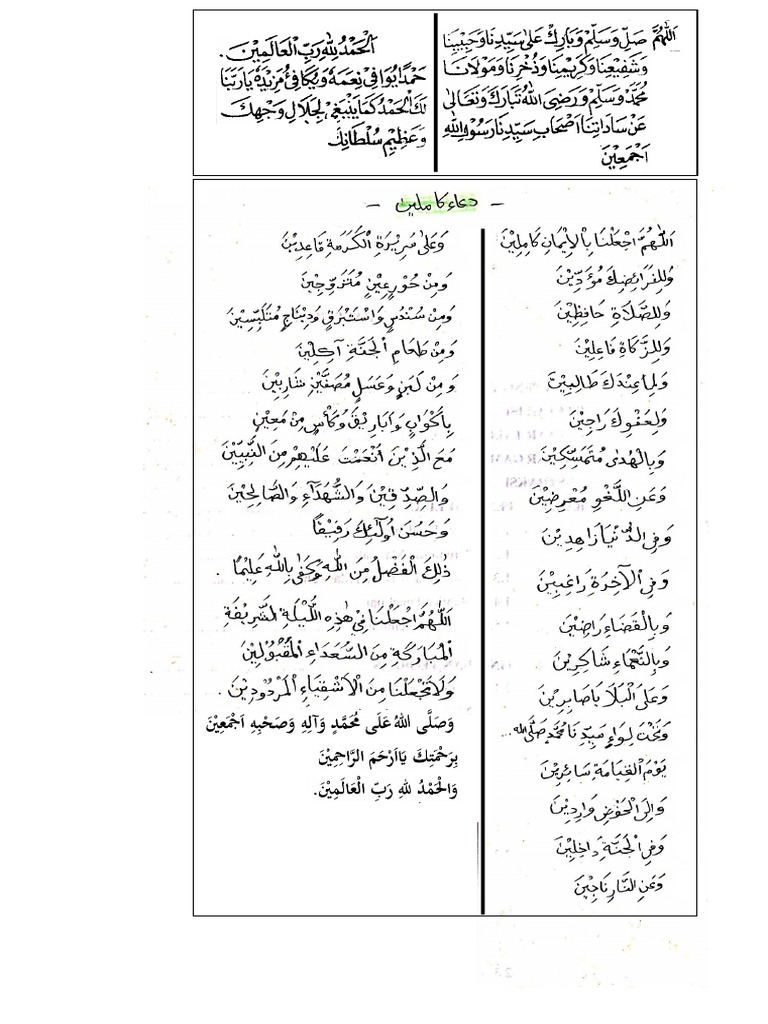 اَللّٰهُمَّ صَلِّ وَسَلِّمْ وَبَارِكْ عَلٰى سَيِّدِنَا وَحَبِيْبِنَا
وَشَفِيْعِنَا وَكَرِيْمِنَا وَذُخْرِنَا وَمَوْلَانَا
مُحَمَّدٍ وَسَلِّمْ وَرَضِيَ اللّٰهُ تَبَارَكَ وَتَعَالٰى
عَنْ سَادَاتِنَا اَصْحَابِ سَيِّدِنَا رَسُوْلِ اللّٰهِ
اَجْمَعِيْنَ
اَلْحَمْدُ لِلّٰهِ رَبِّ الْعَالَمِيْنَ.
حَمْدًا يُوَافِيْ نِعَمَهُ وَيُكَافِئُ مَزِيْدَهُ يَا رَبَّنَا
لَكَ الْحَمْدُ كَمَا يَنْبَغِيْ لِجَلَالِ وَجْهِكَ
وَعَظِيْمِ سُلْطَانِكَ
- دعاء كاملين -
اَللّٰهُمَّ اجْعَلْنَا بِالْاِيْمَانِ كَامِلِيْنَ
وَلِلْفَرَائِضِكَ مُؤَدِّيْنَ
وَلِلصَّلَاةِ حَافِظِيْنَ
وَلِلزَّكَاةِ فَاعِلِيْنَ
وَلِمَا عِنْدَكَ طَالِبِيْنَ
وَلِعَفْوِكَ رَاجِيْنَ
وَبِالْهُدٰى مُتَمَسِّكِيْنَ
وَعَنِ اللَّغْوِ مُعْرِضِيْنَ
وَفِى الدُّنْيَا زَاهِدِيْنَ
وَفِى الْآخِرَةِ رَاغِبِيْنَ
وَبِالْقَضَاءِ رَاضِيْنَ
وَبِالنَّعْمَاءِ شَاكِرِيْنَ
وَعَلَى الْبَلَايَا صَابِرِيْنَ
وَتَحْتَ لِوَاءِ سَيِّدِنَا مُحَمَّدٍ صَلَّى اللّٰه...
يَوْمَ الْقِيَامَةِ سَائِرِيْنَ
وَاِلَى الْحَوْضِ وَارِدِيْنَ
وَفِى الْجَنَّةِ دَاخِلِيْنَ
وَعَنِ النَّارِ نَاجِيْنَ
وَعَلٰى سَرِيْرَةِ الْكَرَمَةِ قَاعِدِيْنَ
وَمِنْ حُوْرٍ عِيْنٍ مُتَزَوِّجِيْنَ
وَمِنْ سُنْدُسٍ وَاسْتَبْرَقٍ وَدِيْبَاجٍ مُتَلَبِّسِيْنَ
وَمِنْ طَعَامِ الْجَنَّةِ آكِلِيْنَ
وَمِنْ لَبَنٍ وَعَسَلٍ مُصَفَّيْنِ شَارِبِيْنَ
بِاَكْوَابٍ وَاَبَارِيْقَ وَكَأْسٍ مِنْ مَعِيْنٍ
مَعَ الَّذِيْنَ اَنْعَمْتَ عَلَيْهِمْ مِنَ النَّبِيِّيْنَ
وَالصِّدِّقِيْنَ وَالشُّهَدَآءِ وَالصَّالِحِيْنَ
وَحَسُنَ اُولٰئِكَ رَفِيْقًا
ذٰلِكَ الْفَضْلُ مِنَ اللّٰهِ وَكَفٰى بِاللّٰهِ عَلِيْمًا.
اَللّٰهُمَّ اجْعَلْنَا فِيْ هٰذِهِ اللَّيْلَةِ الشَّرِيْفَةِ
الْمُبَارَكَةِ مِنَ السُّعَدَاءِ الْمَقْبُوْلِيْنَ
وَلَا تَجْعَلْنَا مِنَ الْاَشْقِيَاءِ الْمَرْدُوْدِيْنَ.
وَصَلَّى اللهُ عَلَى مُحَمَّدٍ وَآلِهِ وَصَحْبِهِ اَجْمَعِيْنَ
بِرَحْمَتِكَ يَااَرْحَمَ الرَّاحِمِيْنَ
وَالْحَمْدُ للهِ رَبِّ الْعَالَمِيْنَ.